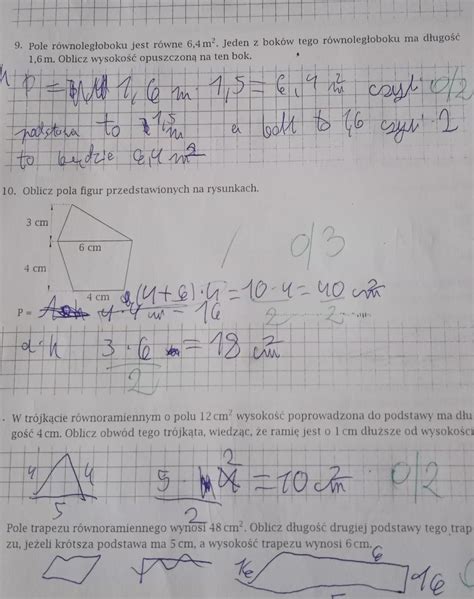 9. Pole równoległoboku jest równe 6,4 m². Jeden z boków tego równoległoboku ma długość
1,6 m. Oblicz wysokość opuszczoną na ten bok.
P = 1,6 m · 1,5 = 6,4 m² czyli 0/2
podstawa to 1,5 m a bok to 1,6 czyli 2
to będzie 6,4 m²
10. Oblicz pola figur przedstawionych na rysunkach.
3 cm
6 cm
0/3
4 cm
4 cm
(4+6)·4 = 10·4 = 40 cm²
P =
4·4 = 16
2
2
a·h 3·6 = 18 cm²
2
W trójkącie równoramiennym o polu 12 cm² wysokość poprowadzona do podstawy ma dłu
gość 4 cm. Oblicz obwód tego trójkąta, wiedząc, że ramię jest o 1 cm dłuższe od wysokości
4 4
5
5 ·
2
= 10 cm²
2
0/2
Pole trapezu równoramiennego wynosi 48 cm². Oblicz długość drugiej podstawy tego trap
zu, jeżeli krótsza podstawa ma 5 cm, a wysokość trapezu wynosi 6 cm.
16
6
16